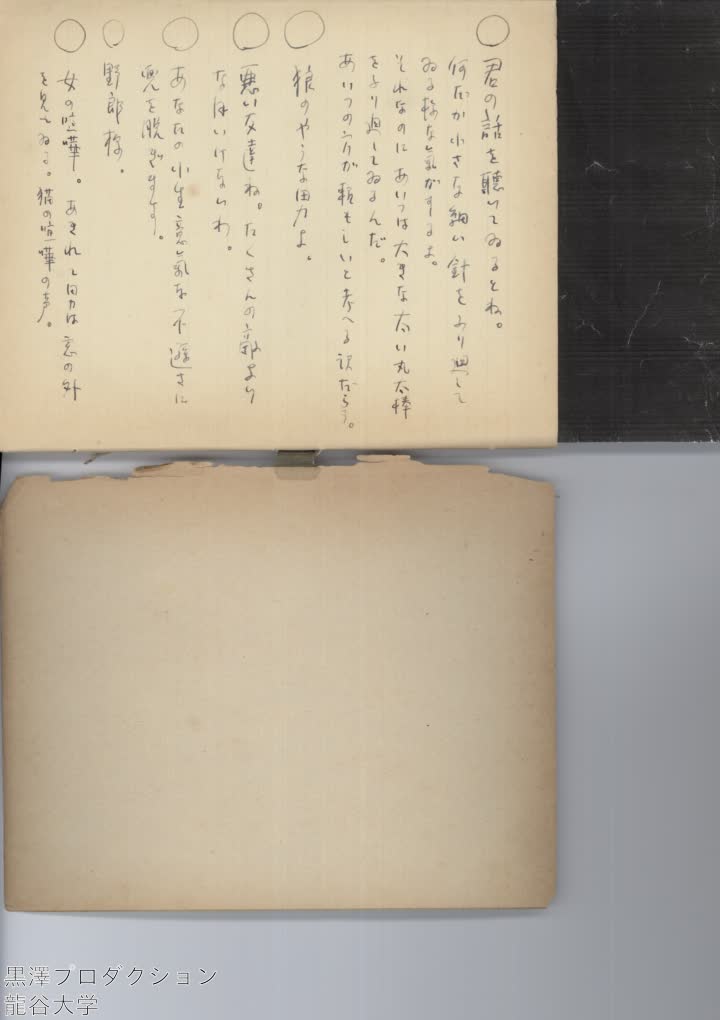 ○ 君の話を聴いてゐるとね。
何だか小さな細い針をふり廻して
ゐる様な気がするよ。
それなのにあいつは大きな太い丸太棒
をふり廻してゐるんだ。
あいつの方が頼もしいと考へる訳だらう。
○ 狼のやうな男よ。
○ 悪い友達ね。たくさんの
なほいけないわ。
○ あなたの小生意気な不遜さに
兜を脱ぎます。
○ 野郎様。
○ 女の喧嘩。あきれし男は窓の外
を見てゐる。猫の喧嘩の声。
黒澤プロダクション
龍谷大学